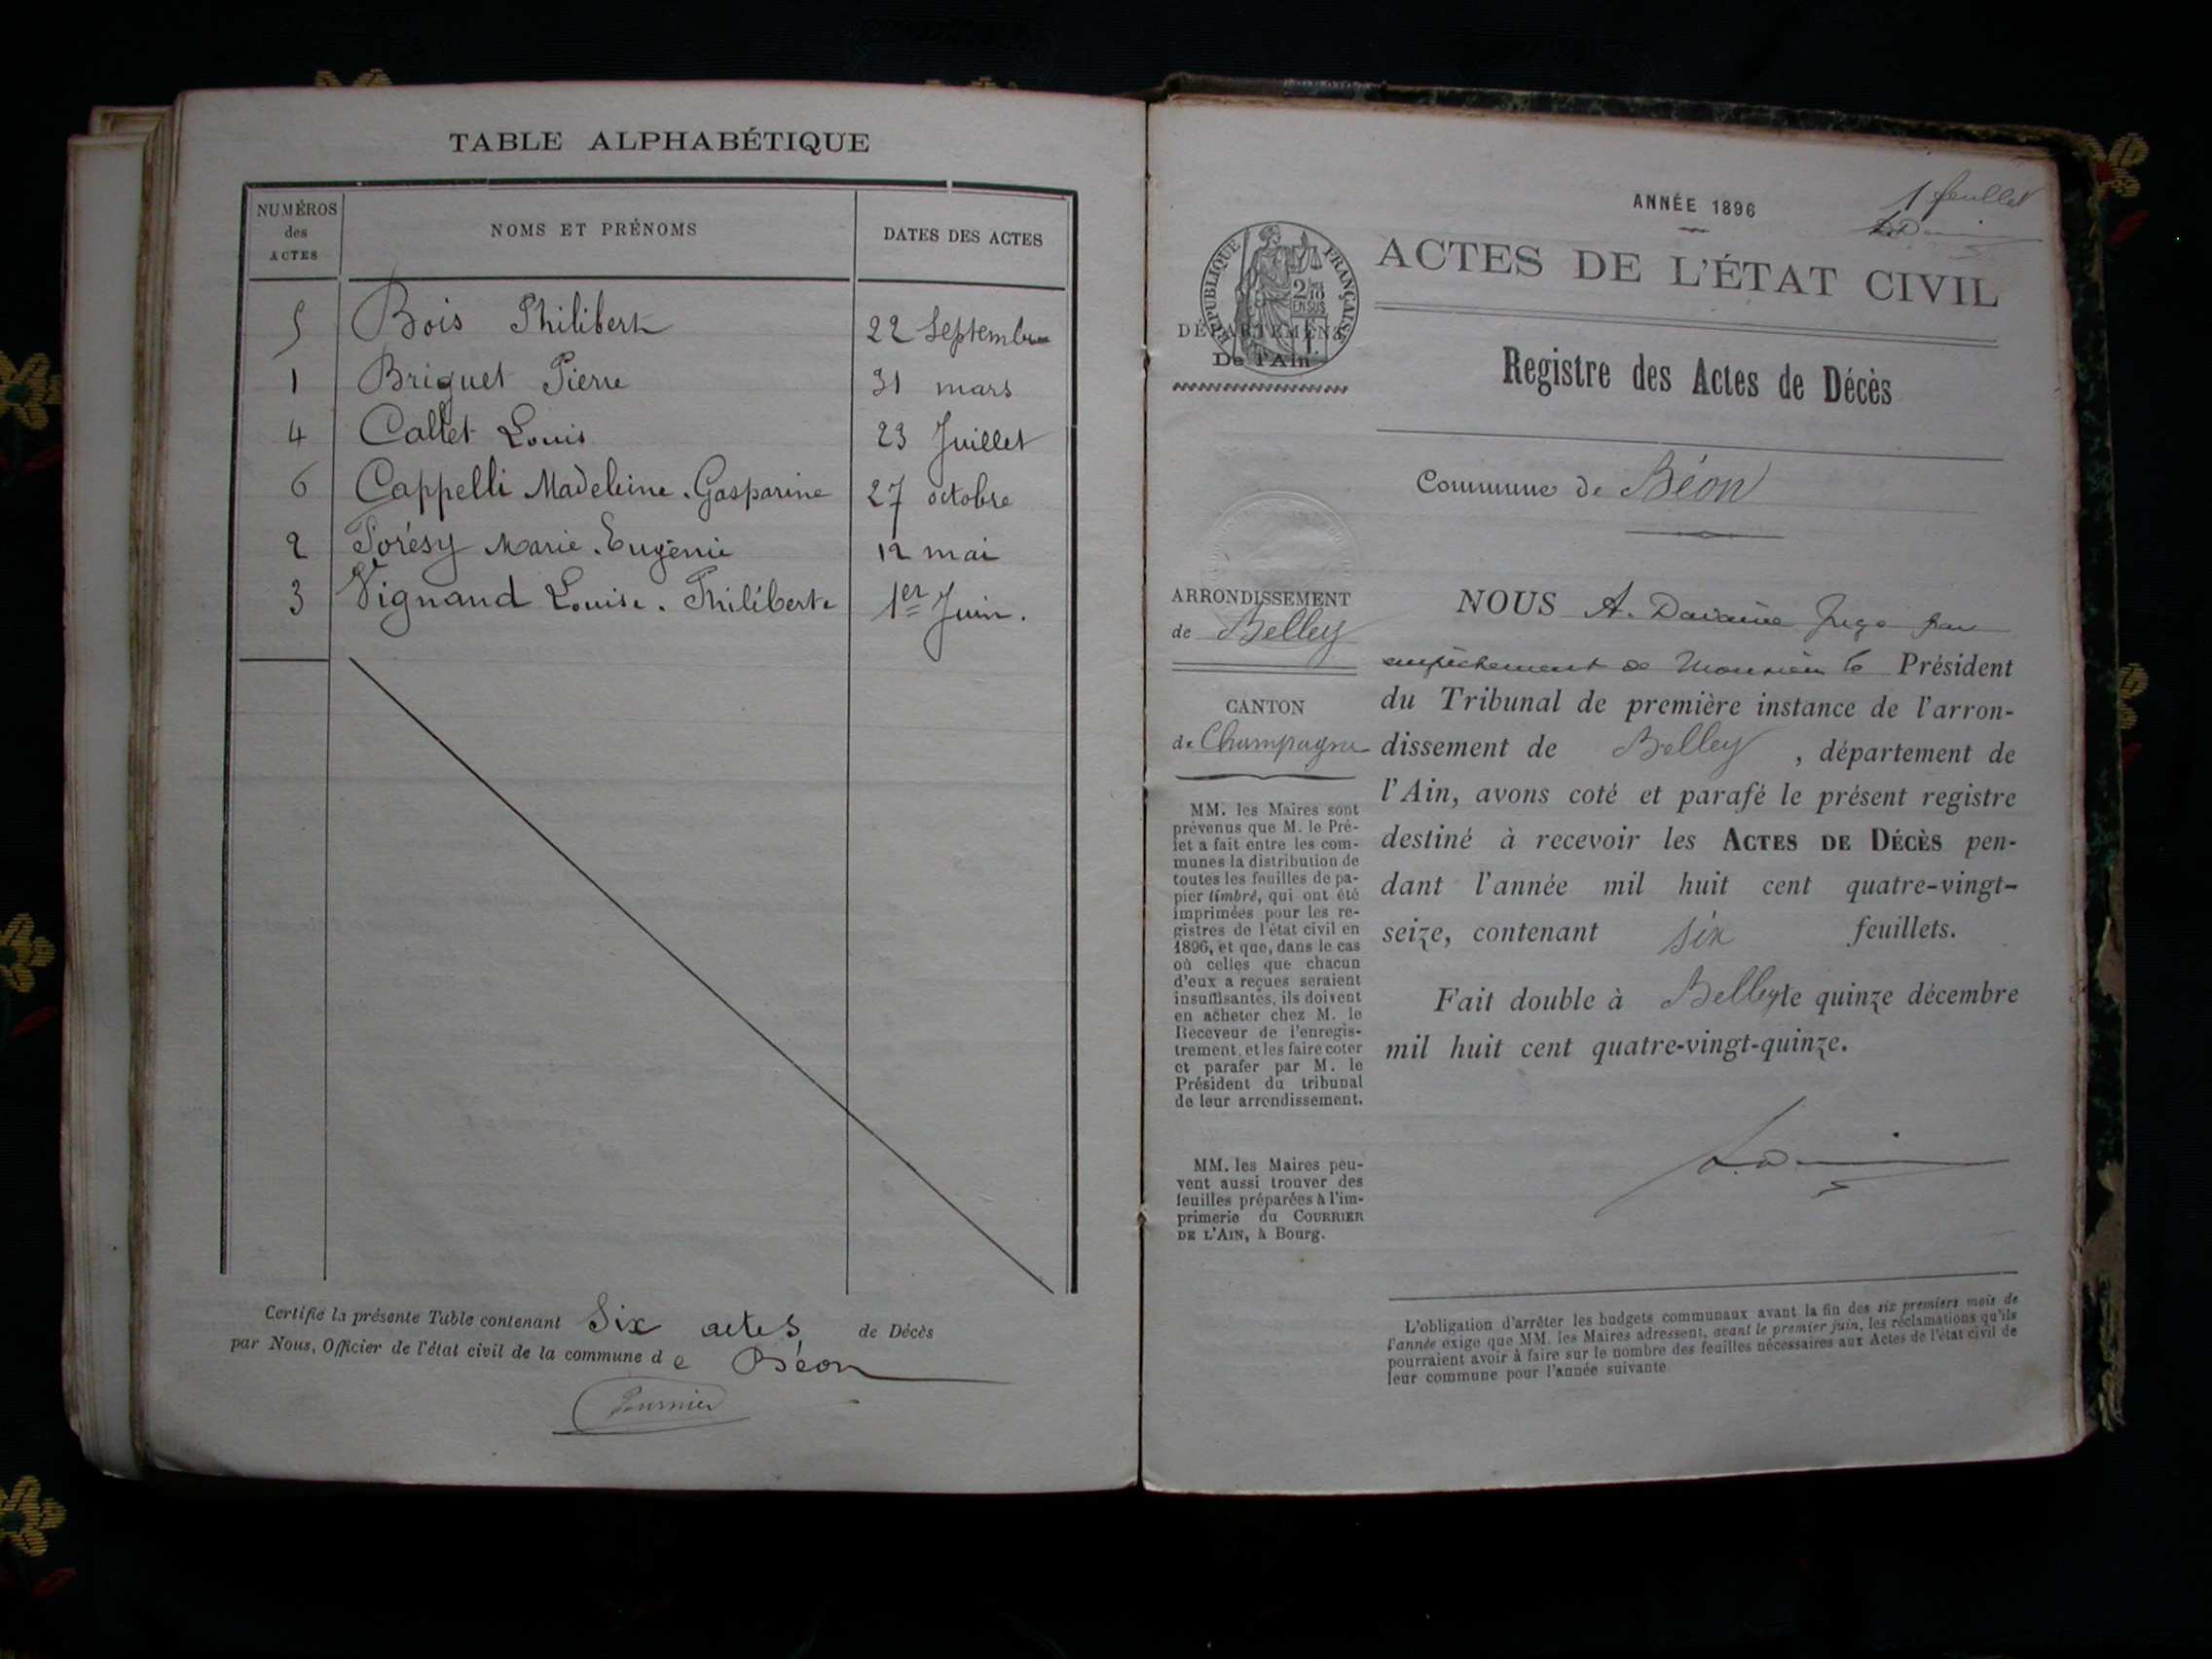 TABLE ALPHABÉTIQUE
NUMÉROS des ACTES
NOMS ET PRÉNOMS
DATES DES ACTES
5 Bois Philibert 22 Septembre
1 Briquet Pierre 31 mars
4 Callet Louis 23 Juillet
6 Cappelli Madeleine. Gasparine 27 octobre
2 Porésy Marie. Eugénie 12 mai
3 Vignand Louise. Philiberte 1er Juin.
Certifié la présente Table contenant Six actes de Décès
par Nous, Officier de l'état civil de la commune de Béon
Fournier
1 feuillet
ANNÉE 1896
ACTES DE L'ÉTAT CIVIL
RÉPUBLIQUE FRANÇAISE
2/10
EN SUS
DÉPARTEMENT
De l'Ain
Registre des Actes de Décès
Commune de Béon
ARRONDISSEMENT
de Belley
CANTON
de Champagne
MM. les Maires sont
prévenus que M. le Pré-
fet a fait entre les com-
munes la distribution de
toutes les feuilles de pa-
pier timbré, qui ont été
imprimées pour les re-
gistres de l'état civil en
1896, et que, dans le cas
où celles que chacun
d'eux a reçues seraient
insuffisantes, ils doivent
en acheter chez M. le
Receveur de l'enregis-
trement, et les faire coter
et parafer par M. le
Président du tribunal
de leur arrondissement.
MM. les Maires peu-
vent aussi trouver des
feuilles préparées à l'im-
primerie du COURRIER
DE L'AIN, à Bourg.
NOUS A. Davaine Juge par
empêchement de Monsieur le Président
du Tribunal de première instance de l'arron-
dissement de Belley, département de
l'Ain, avons coté et parafé le présent registre
destiné à recevoir les ACTES DE DÉCÈS pen-
dant l'année mil huit cent quatre-vingt-
seize, contenant six feuillets.
Fait double à Belley le quinze décembre
mil huit cent quatre-vingt-quinze.
L'obligation d'arrêter les budgets communaux avant la fin des six premiers mois de
l'année exige que MM. les Maires adressent, avant le premier juin, les réclamations qu'ils
pourraient avoir à faire sur le nombre des feuilles nécessaires aux Actes de l'état civil de
leur commune pour l'année suivante